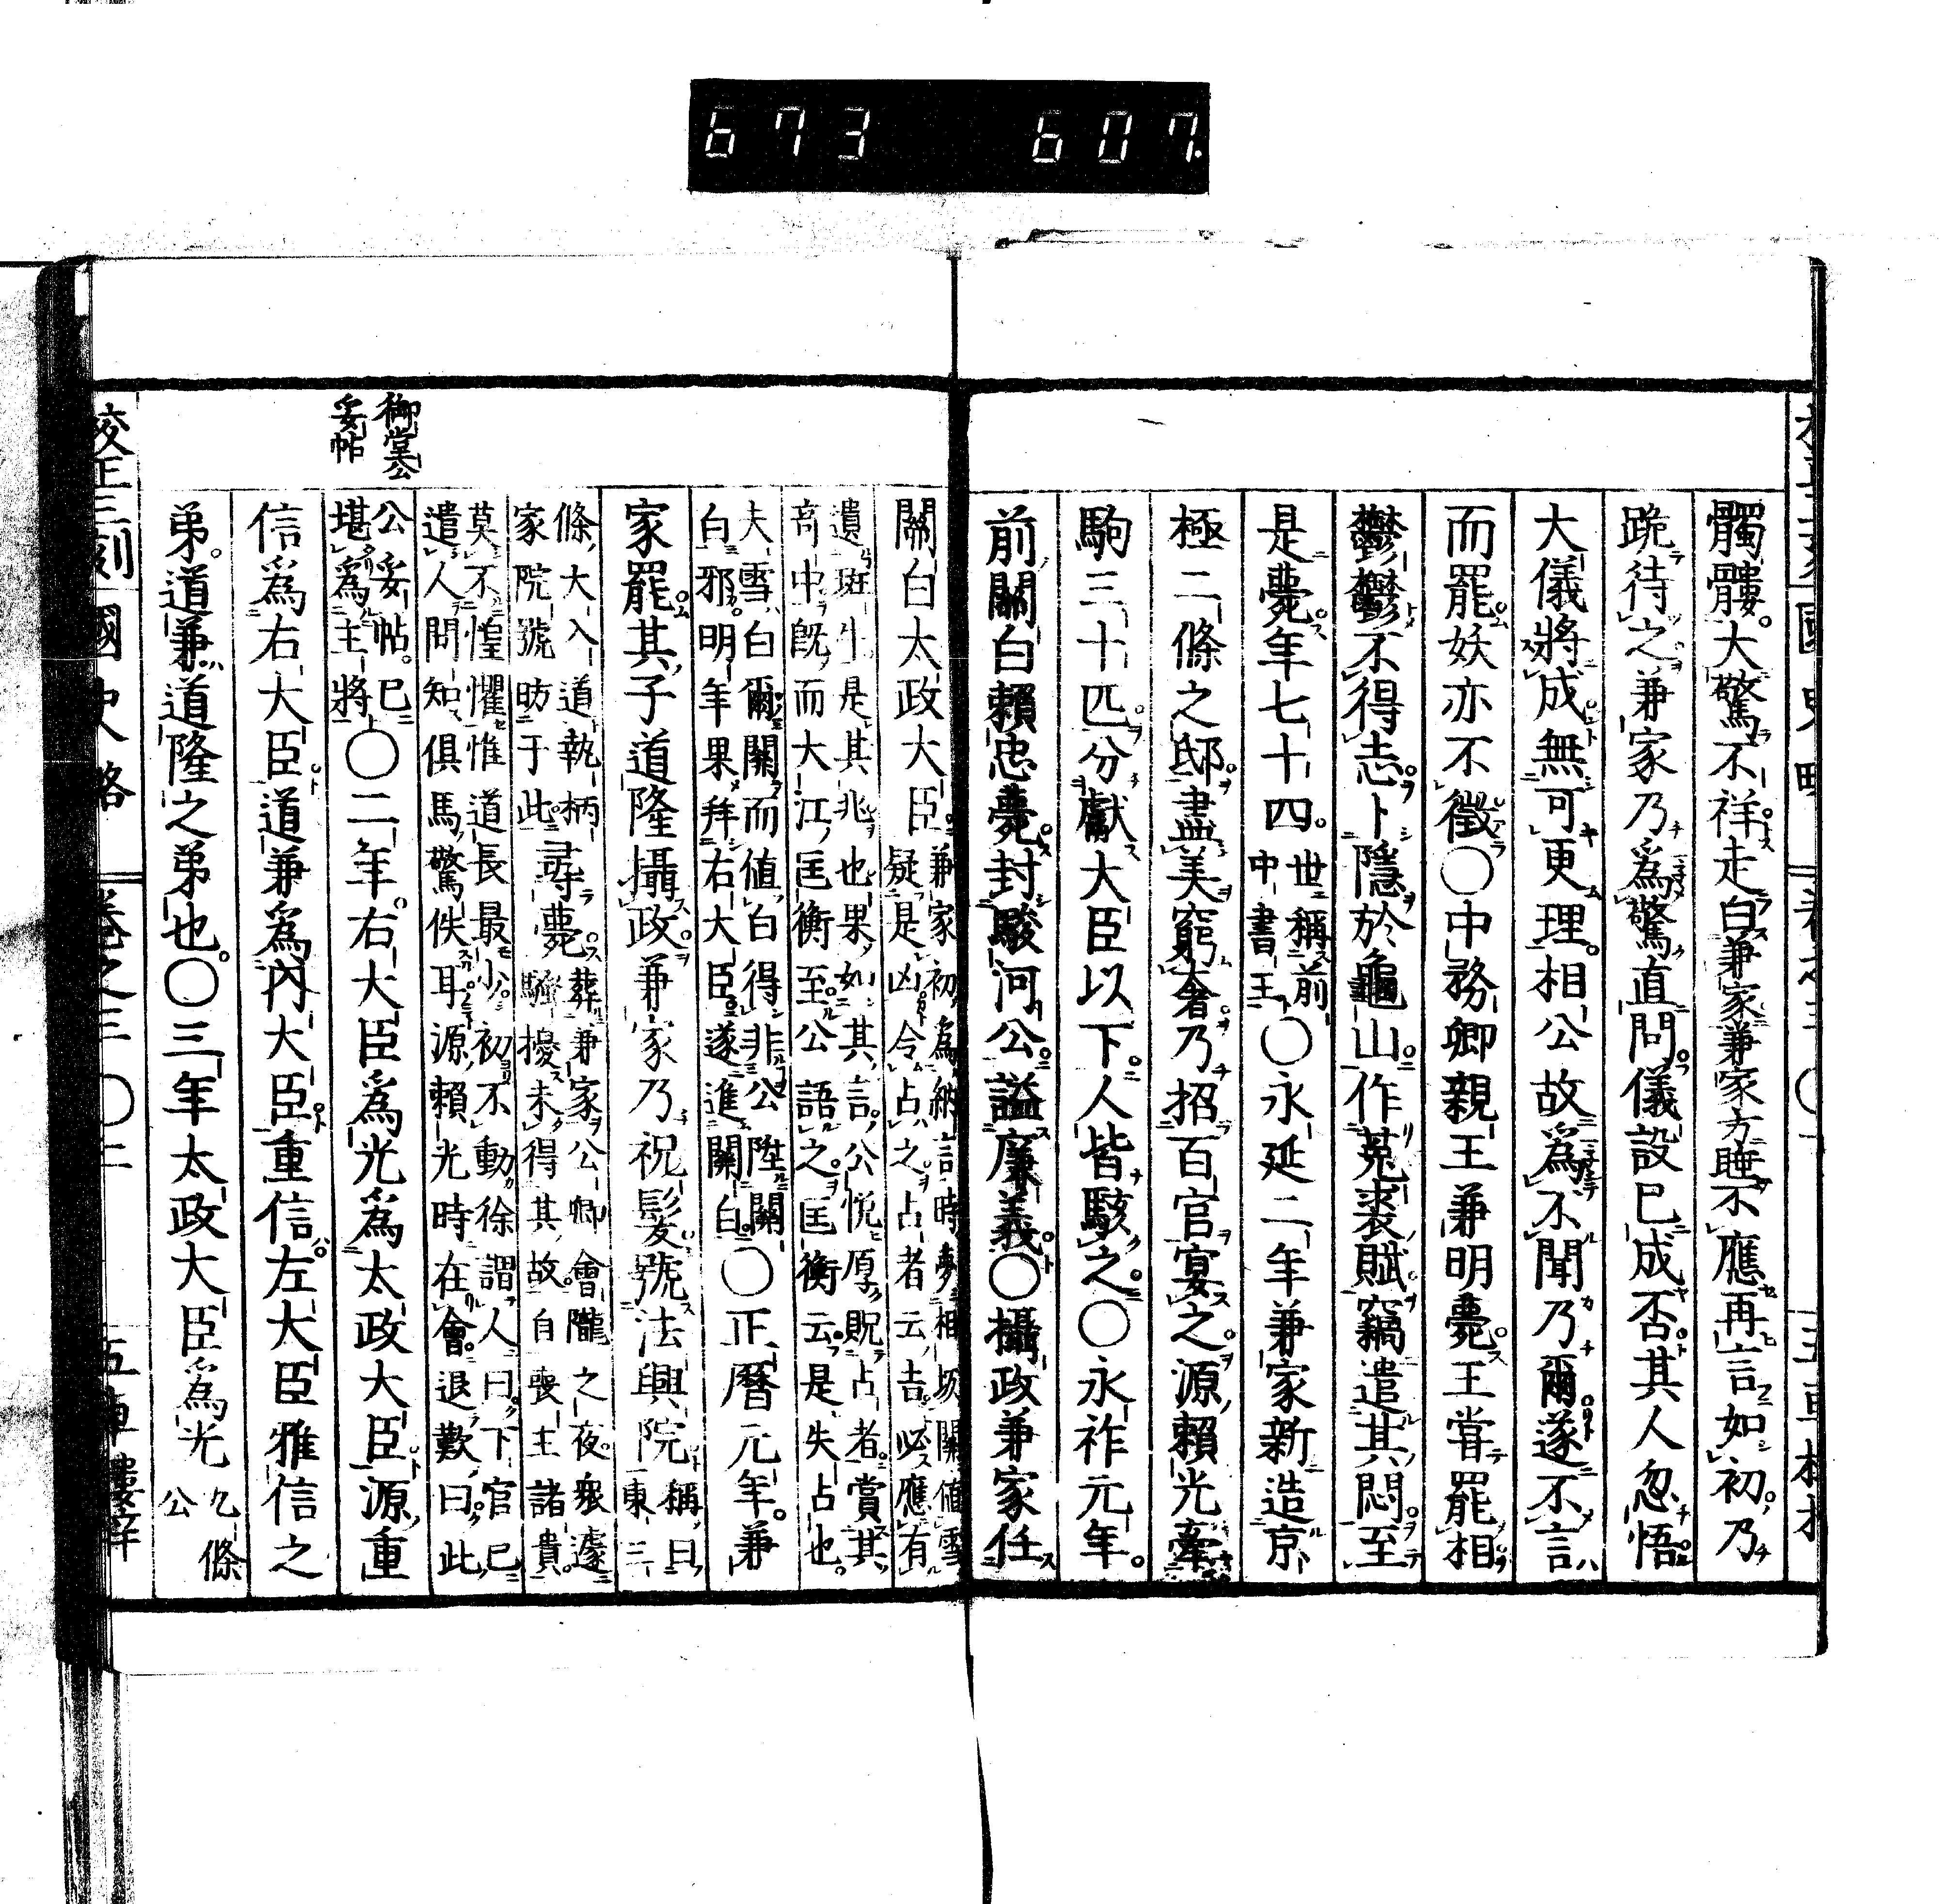 673 607.
髑髏。大驚不祥走白兼家兼家方睡不應再言如初乃
跪待之兼家乃爲驚直問儀設已成否其人忽悟
大儀將成無可更理。相公故爲不聞乃爾遂不言
而罷妖亦不徵○中務卿親王兼明薨王嘗罷相
鬱鬱不得志卜隱於龜山作菟裘賦竊遣其悶至
是薨年七十四。世稱前中書王○永延二年兼家新造京
極二條之邸盡美窮奢乃招百官宴之源賴光牽
駒三十匹分獻大臣以下人皆駭之○永祚元年。
前關白賴忠薨封駿河公謚廉義○攝政兼家任
關白太政大臣兼家初爲納言時夢相坂關値雪疑是凶令占之占者云吉必應有
遺斑牛是其兆也果如其言公悅厚貺占者賞其奇中旣而大江匡衡至公語之匡衡云是失占也。
夫雪白爾關而値白得非公陞關白邪明年果拜右大臣遂進關白。○正曆元年。兼
家罷其子道隆攝政兼家乃祝髮號法興院稱曰東三
條大入道執柄家院號昉于此尋薨葬兼家公卿會隴之夜衆遽騷擾未得其故自喪主諸貴
莫不惶懼惟道長最少初不動徐謂人曰下官已遣人問知俱馬驚佚耳源賴光時在會退歎曰此
御堂公妥帖
公妥帖。已堪爲主將○二年。右大臣爲光爲太政大臣源重
信爲右大臣道兼爲內大臣重信左大臣雅信之
弟。道兼道隆之弟也。○三年太政大臣爲光九條公
校正三刻國史略 卷之三 ○二 五車樓梓